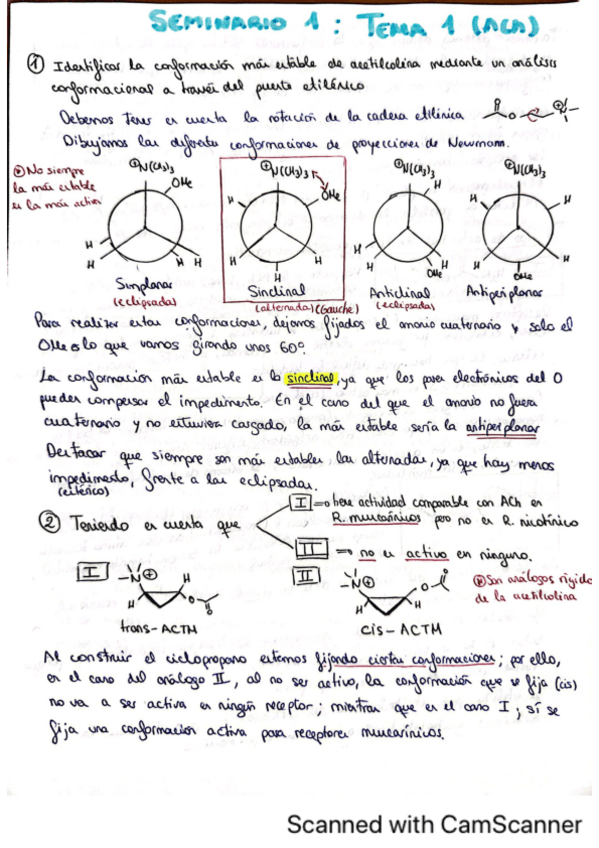 SEMINARIO 1 : TEMA 1 (ACh)
① Identificar la conformación más estable de acetilcolina mediante un análisis
conformacional a través del puente etilénico
Debemos tener en cuenta la rotación de la cadena etilénica
O
O
N
Dibujamos las diferentes conformaciones de proyecciones de Newmann.
⊛ No siempre
la más estable
es la más activa
⊕N(CH₃)₃
OMe
H
H
H
H
Sinplanar
(eclipsada)
⊕N(CH₃)₃
OMe
H
H
H
H
Sinclinal
(alternada) (Gauche)
⊕N(CH₃)₃
H
H
H
OMe
H
Anticlinal
(eclipsada)
⊕N(CH₃)₃
H
H
H
H
OMe
Antiperiplanar
Para realizar estas conformaciones, dejamos fijados el amonio cuaternario y solo el
OMe es lo que vamos girando unos 60º.
La conformación más estable es la sinclinal, ya que los pares electrónicos del O
pueden compensar el impedimento. En el caso del que el amonio no fuera
cuaternario y no estuviera cargado, la más estable sería la antiperiplanar
Destacar que siempre son más estables las alternadas, ya que hay menos
impedimento, frente a las eclipsadas.
(estérico)
② Teniendo en cuenta que
I ⇒ tiene actividad comparable con ACh en
R. muscarínicos pero no en R. nicotínico
II ⇒ no es activo en ninguno.
I
-N⊕
H
H
O
O
trans-ACTM
II
-N⊕
H
H
O
O
cis-ACTM
⊛ Son análogos rígidos
de la acetilcolina
Al construir el ciclopropano estamos fijando ciertas conformaciones; por ello,
en el caso del análogo II, al no ser activo, la conformación que se fija (cis)
no va a ser activa en ningún receptor; mientras que en el caso I, sí se
fija una conformación activa para receptores muscarínicos.
Scanned with CamScanner